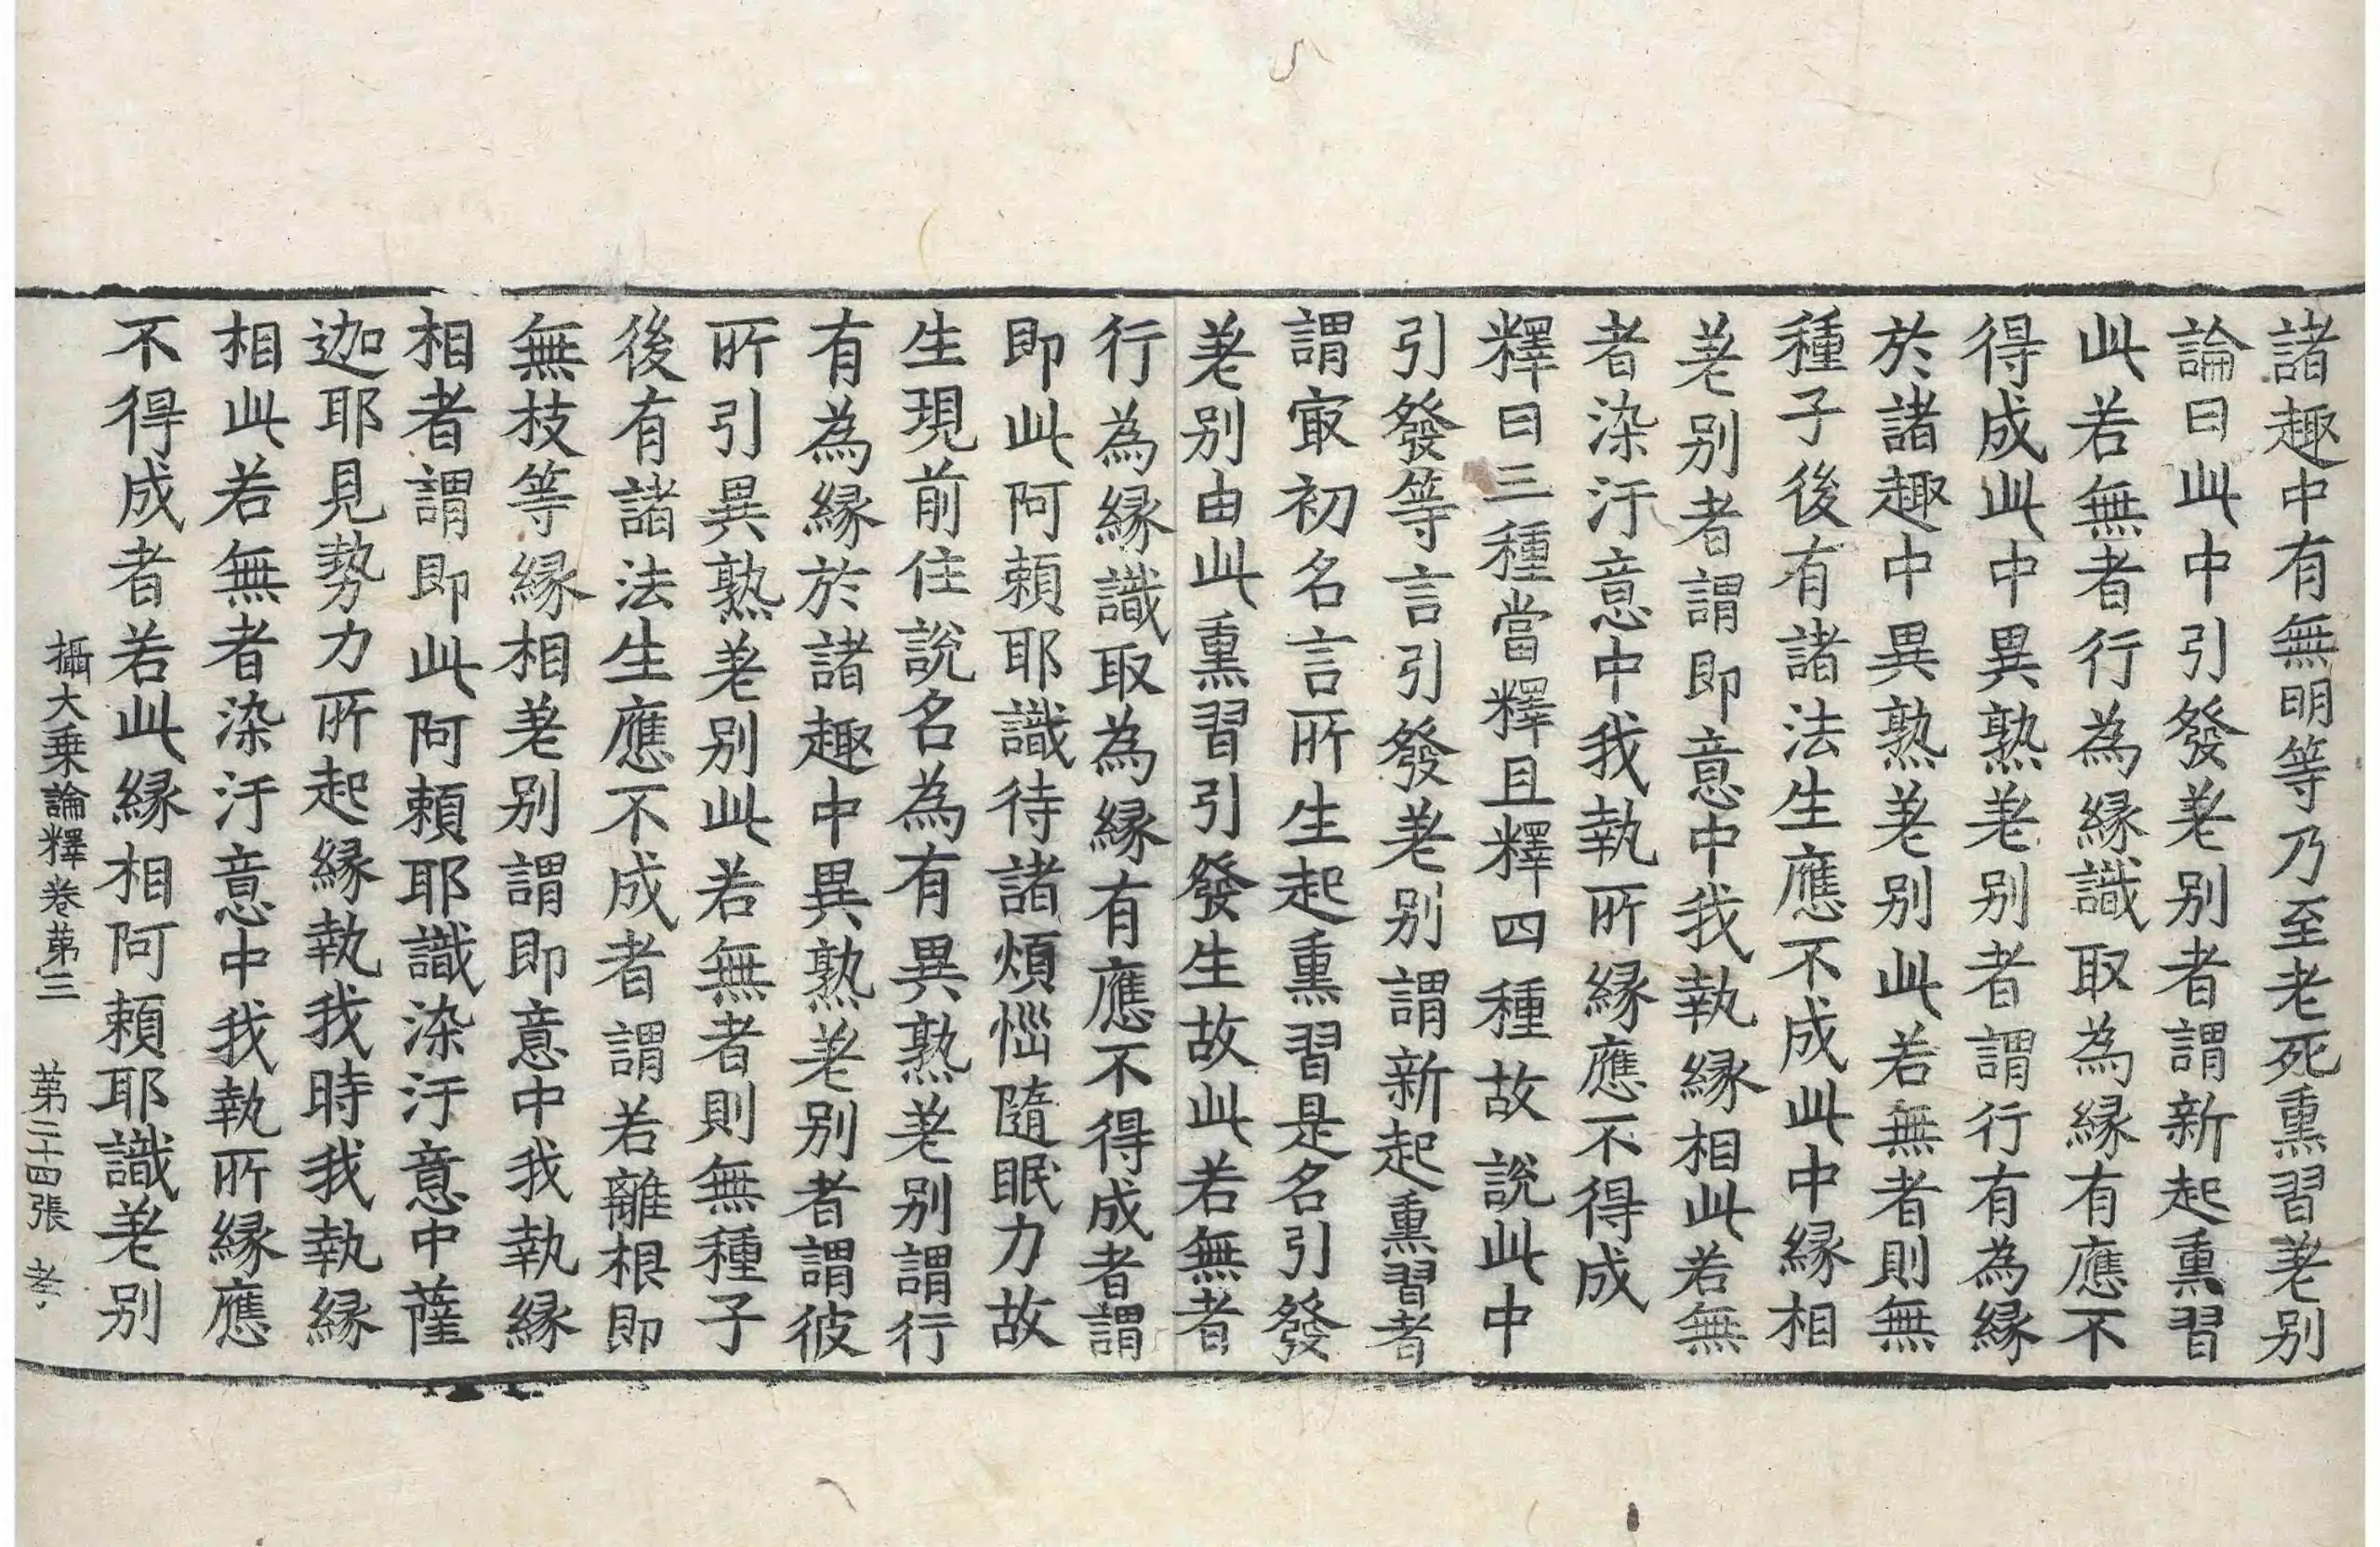 諸趣中有無明等乃至老死熏習差别
論曰此中引發差别者謂新起熏習
此若無者行為縁識取為縁有應不
得成此中異熟差别者謂行有為縁
於諸趣中異熟差别此若無者則無
種子後有諸法生應不成此中縁相
差别者謂即意中我執縁相此若無
者染汙意中我執所縁應不得成
釋曰三種當釋且釋四種故說此中
引發等言引發差别謂新起熏習者
謂㝡初名言所生起熏習是名引發
差别由此熏習引發生故此若無者
行為縁識取為縁有應不得成者謂
即此阿頼耶識待諸煩惱隨眠力故
生現前住說名為有異熟差别謂行
有為縁於諸趣中異熟差别者謂彼
所引異熟差别此若無者則無種子
後有諸法生應不成者謂若離根即
無枝等縁相差别謂即意中我執縁
相者謂即此阿頼耶識染汙意中薩
迦耶見勢力所起縁執我時我執縁
相此若無者染汙意中我執所縁應
不得成者若此縁相阿頼耶識差别
攝大乗論釋卷苐三 苐二十四張 老